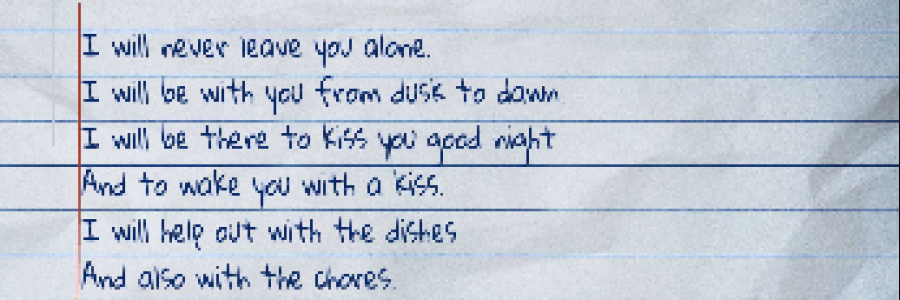 I will never leave you alone.
I will be with you from dusk to dawn
I will be there to kiss you good night
And to wake you with a kiss.
I will help out with the dishes
And also with the chores.